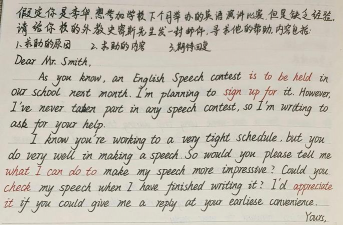 假定你是李华,想参加学校下个月举办的英语演讲比赛,但是缺乏经验,
请给你校的外教史密斯先生发一封邮件,寻求他的帮助,内容包括:
1.求助的原因 2.求助的内容 3.期待回复
Dear Mr. Smith,
As you know, an English Speech contest is to be held in
our school next month. I'm planning to sign up for it. However,
I've never taken part in any speech contest, so I'm writing to
ask for your help.
I know you're working to a very tight schedule, but you
do very well in making a speech. So would you please tell me
what I can do to make my speech more impressive? Could you
check my speech when I have finished writing it? I'd appreciate
it if you could give me a reply at your earliese convenience.
Yours,